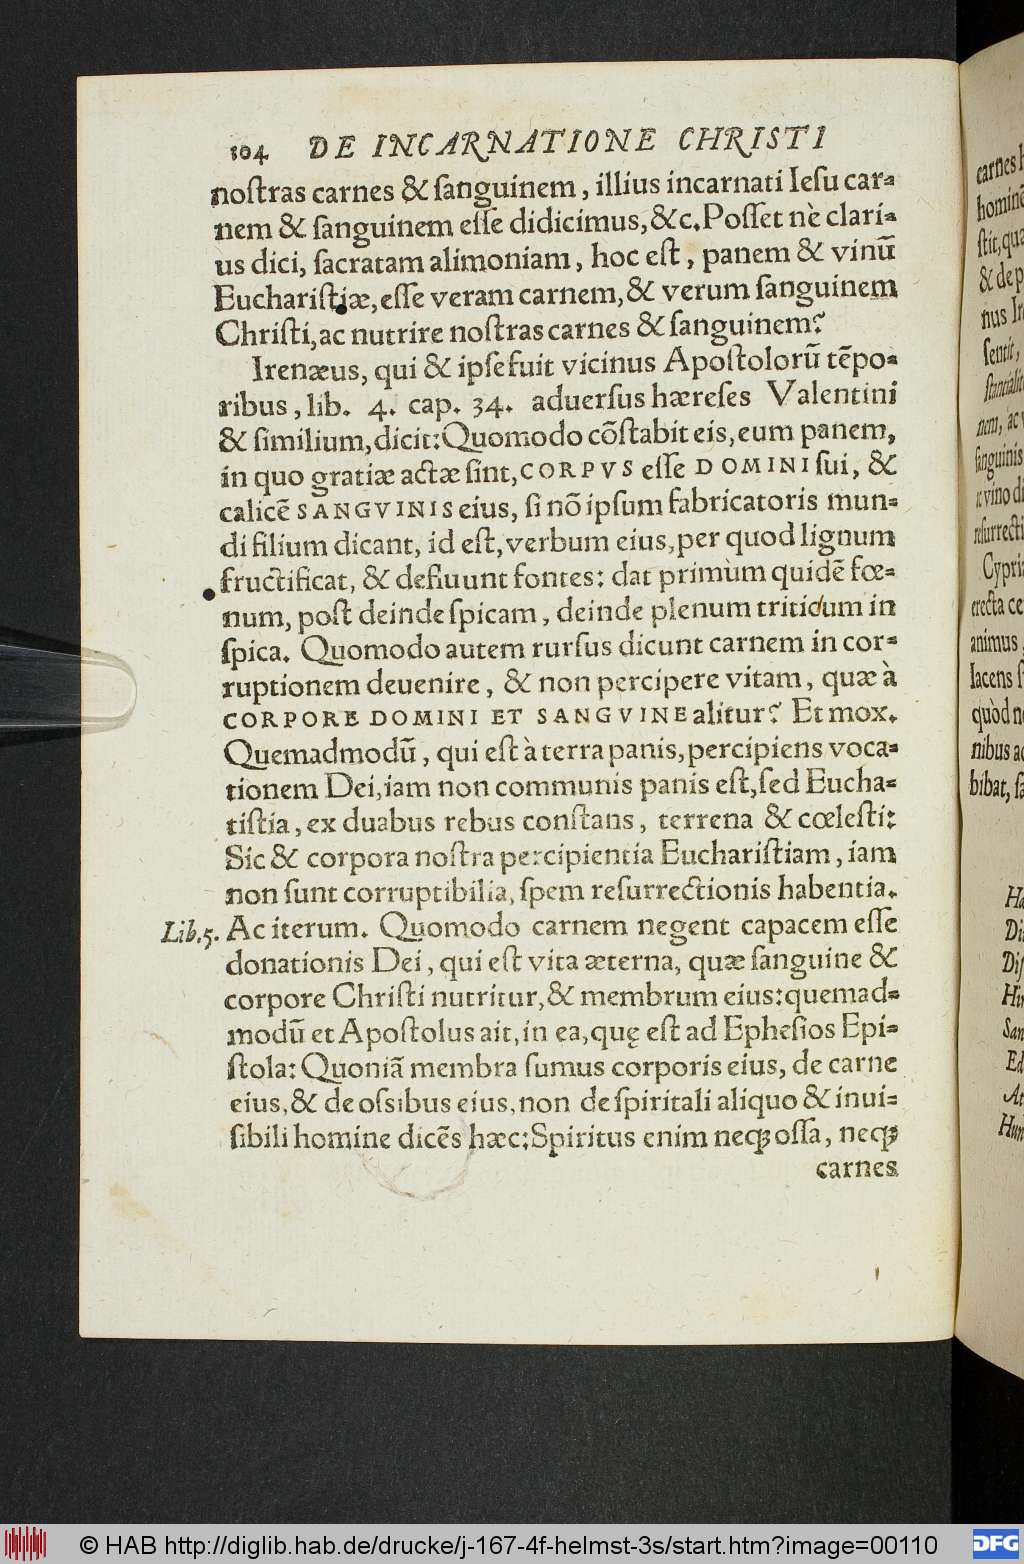 104 DE INCARNATIONE CHRISTI
noſtras carnes & ſanguinem, illius incarnati Ieſu car-
nem & ſanguinem eſſe didicimus, &c. Poſſet nè clari-
us dici, ſacratam alimoniam, hoc eſt, panem & vinū
Euchariſtiæ, eſſe veram carnem, & verum ſanguinem
Chriſti, ac nutrire noſtras carnes & ſanguinem?
Irenæus, qui & ipſe fuit vicinus Apoſtolorū tēpo-
ribus, lib. 4. cap. 34. aduerſus hæreſes Valentini
& ſimilium, dicit: Quomodo cōſtabit eis, eum panem,
in quo gratiæ actæ ſint, CORPVS eſſe DOMINI ſui, &
calicē SANGVINIS eius, ſi nō ipſum fabricatoris mun-
di filium dicant, id eſt, verbum eius, per quod lignum
fructificat, & defluunt fontes: dat primùm quidē fœ-
num, poſt deinde ſpicam, deinde plenum triticum in
ſpica. Quomodo autem rurſus dicunt carnem in cor-
ruptionem deuenire, & non percipere vitam, quæ à
CORPORE DOMINI ET SANGVINE alitur? Et mox.
Quemadmodū, qui eſt à terra panis, percipiens voca-
tionem Dei, iam non communis panis eſt, ſed Eucha-
tiſtia, ex duabus rebus conſtans, terrena & cœleſti:
Sic & corpora noſtra percipientia Euchariſtiam, iam
non ſunt corruptibilia, ſpem reſurrectionis habentia.
Lib. 5. Ac iterum. Quomodo carnem negent capacem eſſe
donationis Dei, qui eſt vita æterna, quæ ſanguine &
corpore Chriſti nutritur, & membrum eius: quemad-
modū et Apoſtolus ait, in ea, quę eſt ad Epheſios Epi-
ſtola: Quoniā membra ſumus corporis eius, de carne
eius, & de oſsibus eius, non de ſpiritali aliquo & inui-
ſibili homine dicēs hæc: Spiritus enim neqꝫ oſſa, neqꝫ
carnes
carnes
& de p
Cypria
erecta ce
animus,
Iacens
quòd
nibus
bibat,
© HAB http://diglib.hab.de/drucke/j-167-4f-helmst-3s/start.htm?image=00110
DFG